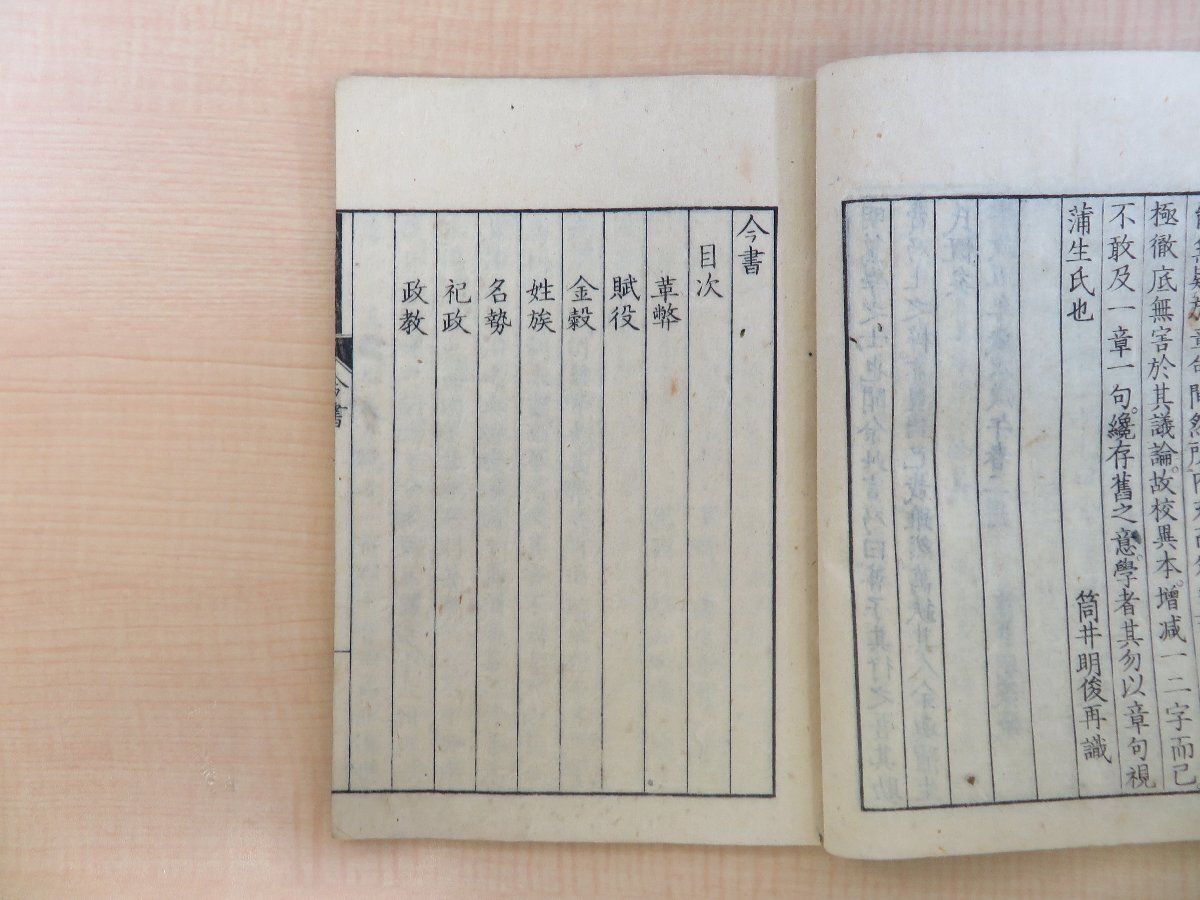 極徹底無害於其議論。故校異本。増減一二字而已
不敢及一章一句。纔存舊之意。學者其勿以章句視
蒲生氏也
筒井明俊再識
今書
目次
革弊
賦役
金穀
姓族
名勢
祀政
政教
今書